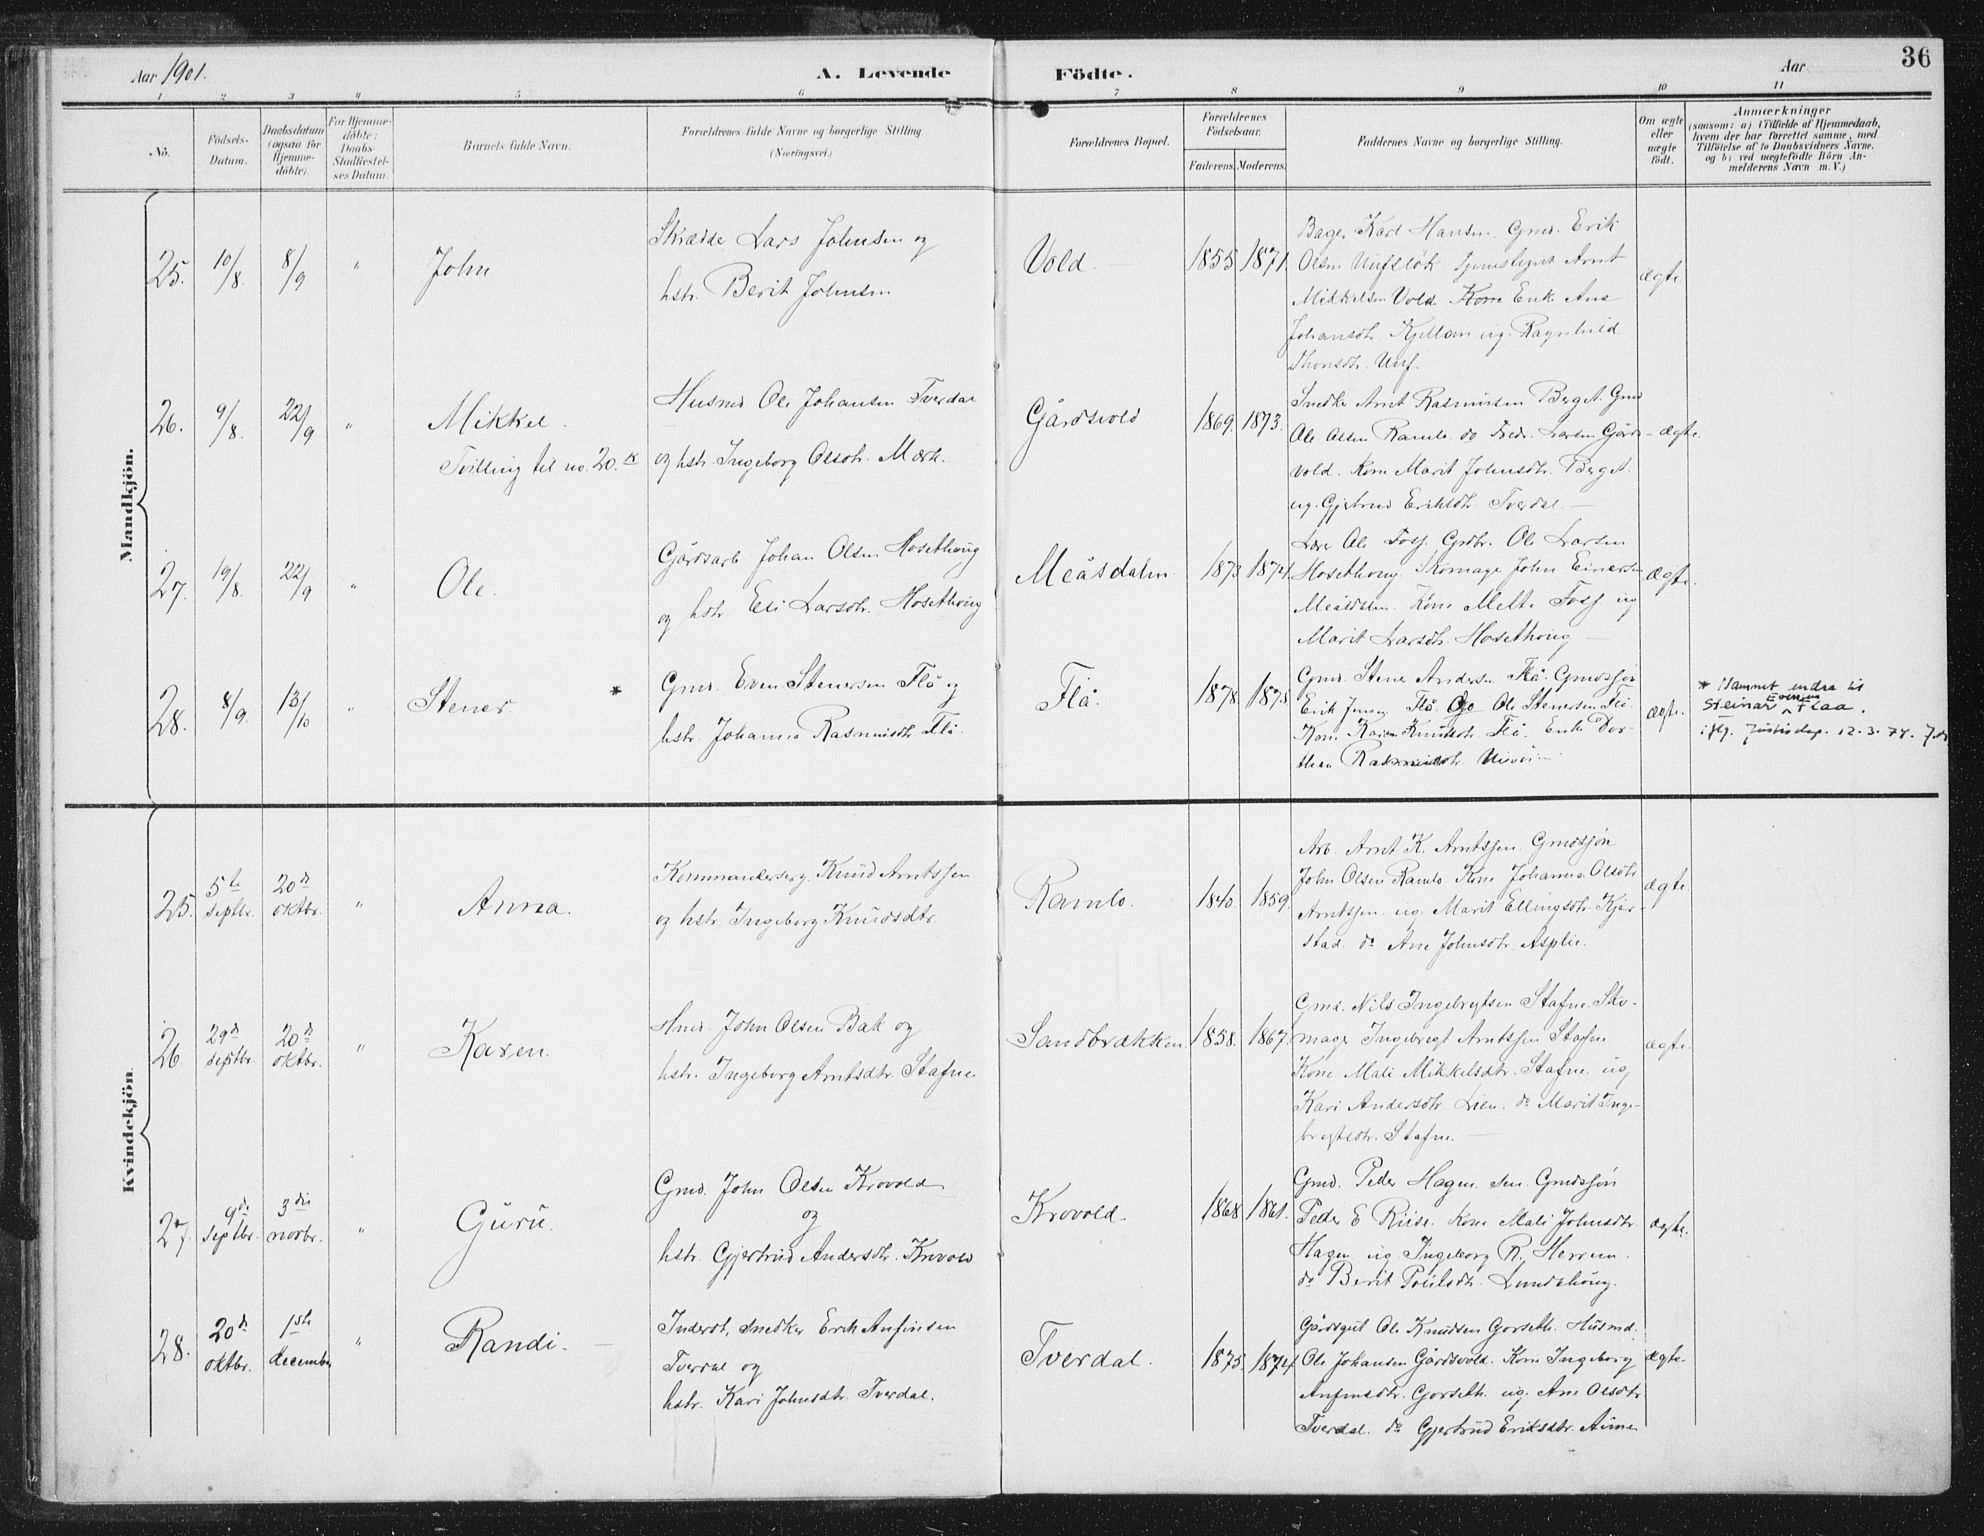 36
Aar 1901.
A. Levende Födte.
Aar
1 2 3 4 5 6 7 8 9 10 11
No.
Födsels-Datum.
Daabsdatum (ogsaa for Hjemme-döbte).
For Hjemme-döbte: Daabs-Stadfæstel-ses Datum.
Barnets fulde Navn.
Forældrenes fulde Navne og borgerlige Stilling. (Næringsvei.)
Forældrenes Bopæl.
Forældrenes Födselsaar.
Faderens. Moderens.
Faddernes Navne og borgerlige Stilling.
Om ægte eller uægte født.
Anmærkninger
(saasom: a) i Tilfælde af Hjemmedaab, hvem der har forrettet samme, med Tilföielse af to Daabsvidners Navne, og b) ved uægtefödte Börn An-melderens Navn m. V.)
Mandkjön.
25. 10/8. 8/9 " John
Skrædde Lars Johnsen og
hstr. Berit Johnsen
Vold. 1855 1871.
Bager Karl Hansen. Gmd. Erik
Olsen Arnt
Mikkelsen Vold. Kone Enk. Ane
Johansdtr. Kjellan og Ragnhild
Thorsdtr.
ægte
26. 9/8. 22/9 " Mikkel.
Tvilling til no. 20.
Husmd Ole Johansen Tverdal
og hstr. Ingeborg Olsdtr. Mærk.
Gårdsvold 1869. 1873.
Snedke Arnt Rasmussen Berget. Gmd
Ole Olsen Ramlo. do Peder Larsen Gårds-
vold. Kone Marit Johnsdtr. Berget.
og Gjertrud Eriksdtr. Tverdal.
ægte.
27. 19/8. 22/9 " Ole.
Gårdsarb Johan Olsen Hosethoug
og hstr. Eli Larsdtr. Hosethoug
Meåsdalen. 1873 1874.
Lærer Ole Fosf. Gmbr. Ole Larsen
Hosethoug. Skomage John Einarsen
Meåsdalen. Kone Melt. Fosf og
Marit Larsdtr. Hosethoug
ægte.
28. 8/9. 13/10 " Stener *
Gmd. Even Stenersen Flå og
hstr. Johanna Rasmusdtr. Flå.
Flå. 1878. 1875
Gmd. Stener Andersen Flå. Gmdssøn
Erik Jensen Flå. Ole Stenersen Flå.
Kone Karen Knutsdtr. Flå. Enke Dor-
thea Rasmusdtr.
ægte.
* Namnet endra til
Steinar Evensen Flaa.
iflg. Justisdep. 12.3.74.
Kvindekjön.
25. 5te septbr. 20de oktbr. " Anna.
Kommankerserg. Knud Arntssen
og hstr. Ingeborg Knudsdtr.
Ramlo. 1840. 1859.
Arb. Arnt K. Arntssen. Gmdssøn
John Olsen Ramlo. Kone Johanna Olsdtr
Arntssen. og Marit Ellingsdtr. Kjer-
stad. do Ane Johnsdtr. Asplie.
ægte
26. 29de septbr. 20de oktbr. " Karen.
Hmd. John Olsen Bak og
hstr. Ingeborg Arntsdtr. Stafne
Sandbrækken 1858. 1867.
Gmd. Nils Ingebregtsen Stafne. Sko-
mager Ingebregt Arntssen Stafne
Kone Mali Mikkelsdtr. Stafne. og
Kari Andersdtr Lien. do Marit Inge-
bregtsdtr. Stafne.
ægte.
27. 9de septbr. 3die novbr. " Guru.
Gmd. John Olsen Krovold
og
hstr. Gjertrud Andersdtr. Krovold
Krovold. 1868 1861.
Gmd. Peder Hagen sen. Gmdssøn
Peder E Riise. Kone Mali Johnsdtr
Hagen og Ingeborg R. Herrem.
do Berit Poulsdtr. Lundshoug.
ægte.
28. 20de oktbr. 1ste december " Randi.
Inderst, snedker Erik Anfinsen
Tverdal og
hstr. Kari Johnsdtr. Tverdal.
Tverdal. 1875. 1874.
Gårdsgut Ole Knudsen Gorseth. Husmd.
Ole Johansen Gårdsvold. Kone Ingeborg
Anfinsdtr. Gorseth. og Ane Olsdtr
Tverdal. do Gjertrud Eriksdtr. Aune
ægte.